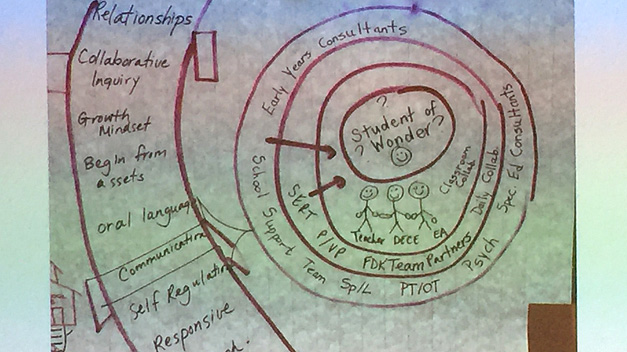 Relationships
Collaborative
Inquiry
Growth
Mindset
Begin from
assets
oral language
Communication
Self Regulation
Responsive
Early Years Consultants
Spec. Ed Consultants
School Support Team
Sp/L
PT/OT
Psych
SERT P/VP
FDK Team Partners
Daily Collab
Classroom
Collab
? ?
Student of
Wonder
?
Teacher DECE EA